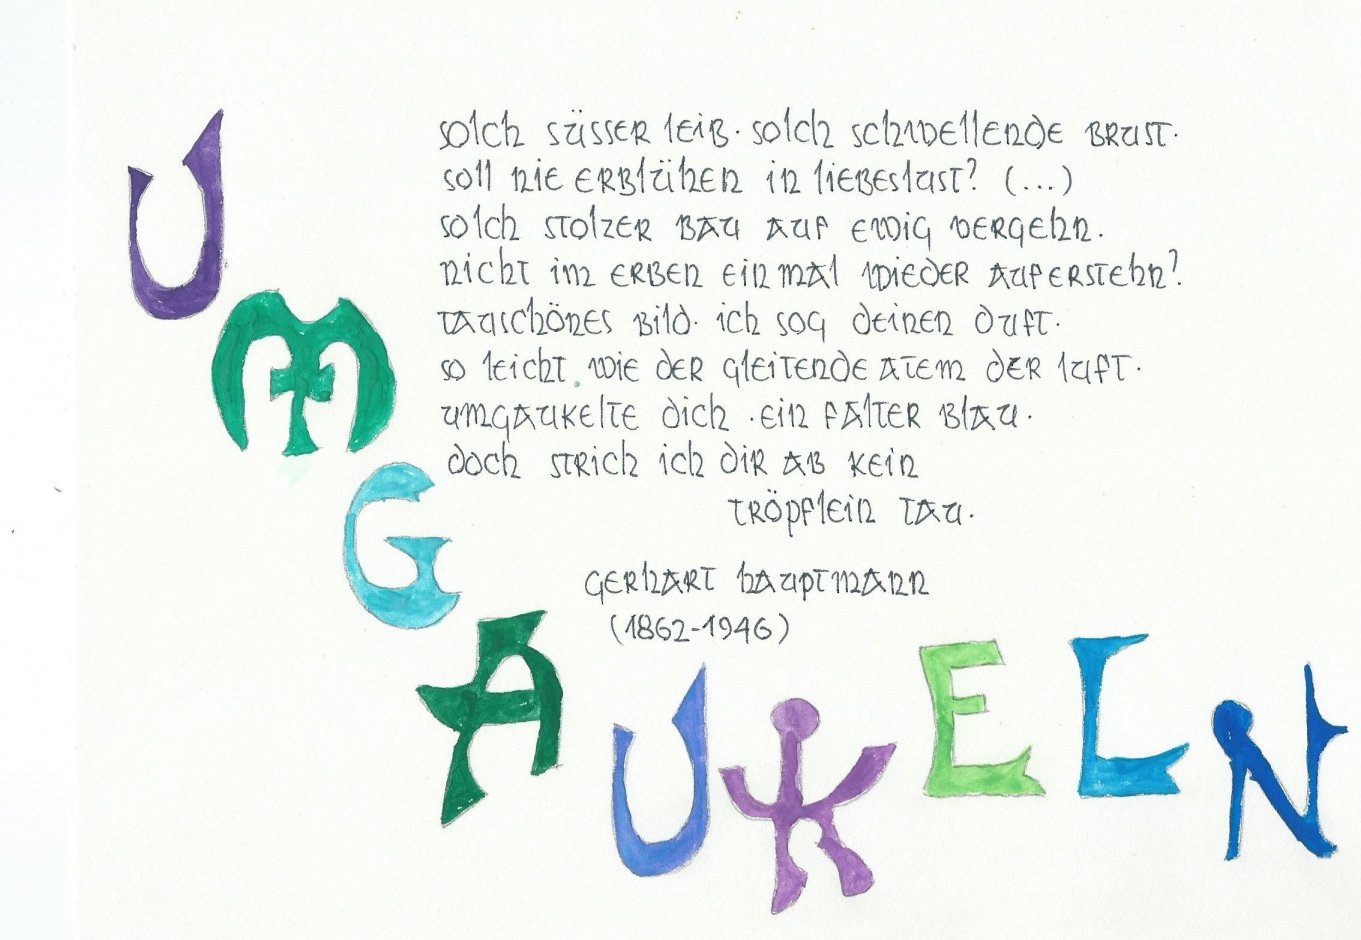 solch süsser leib. solch schwellende brust.
soll nie erblühen in liebeslust? (...)
solch stolzer bau auf ewig vergehn.
nicht im erben einmal wieder auferstehn?
tauschönes bild. ich sog deinen duft.
so leicht. wie der gleitende atem der luft.
umgaukelte dich . ein falter blau.
doch strich ich dir ab kein
tröpflein tau.
gerhart hauptmann
(1862-1946)
UMGAUKELN